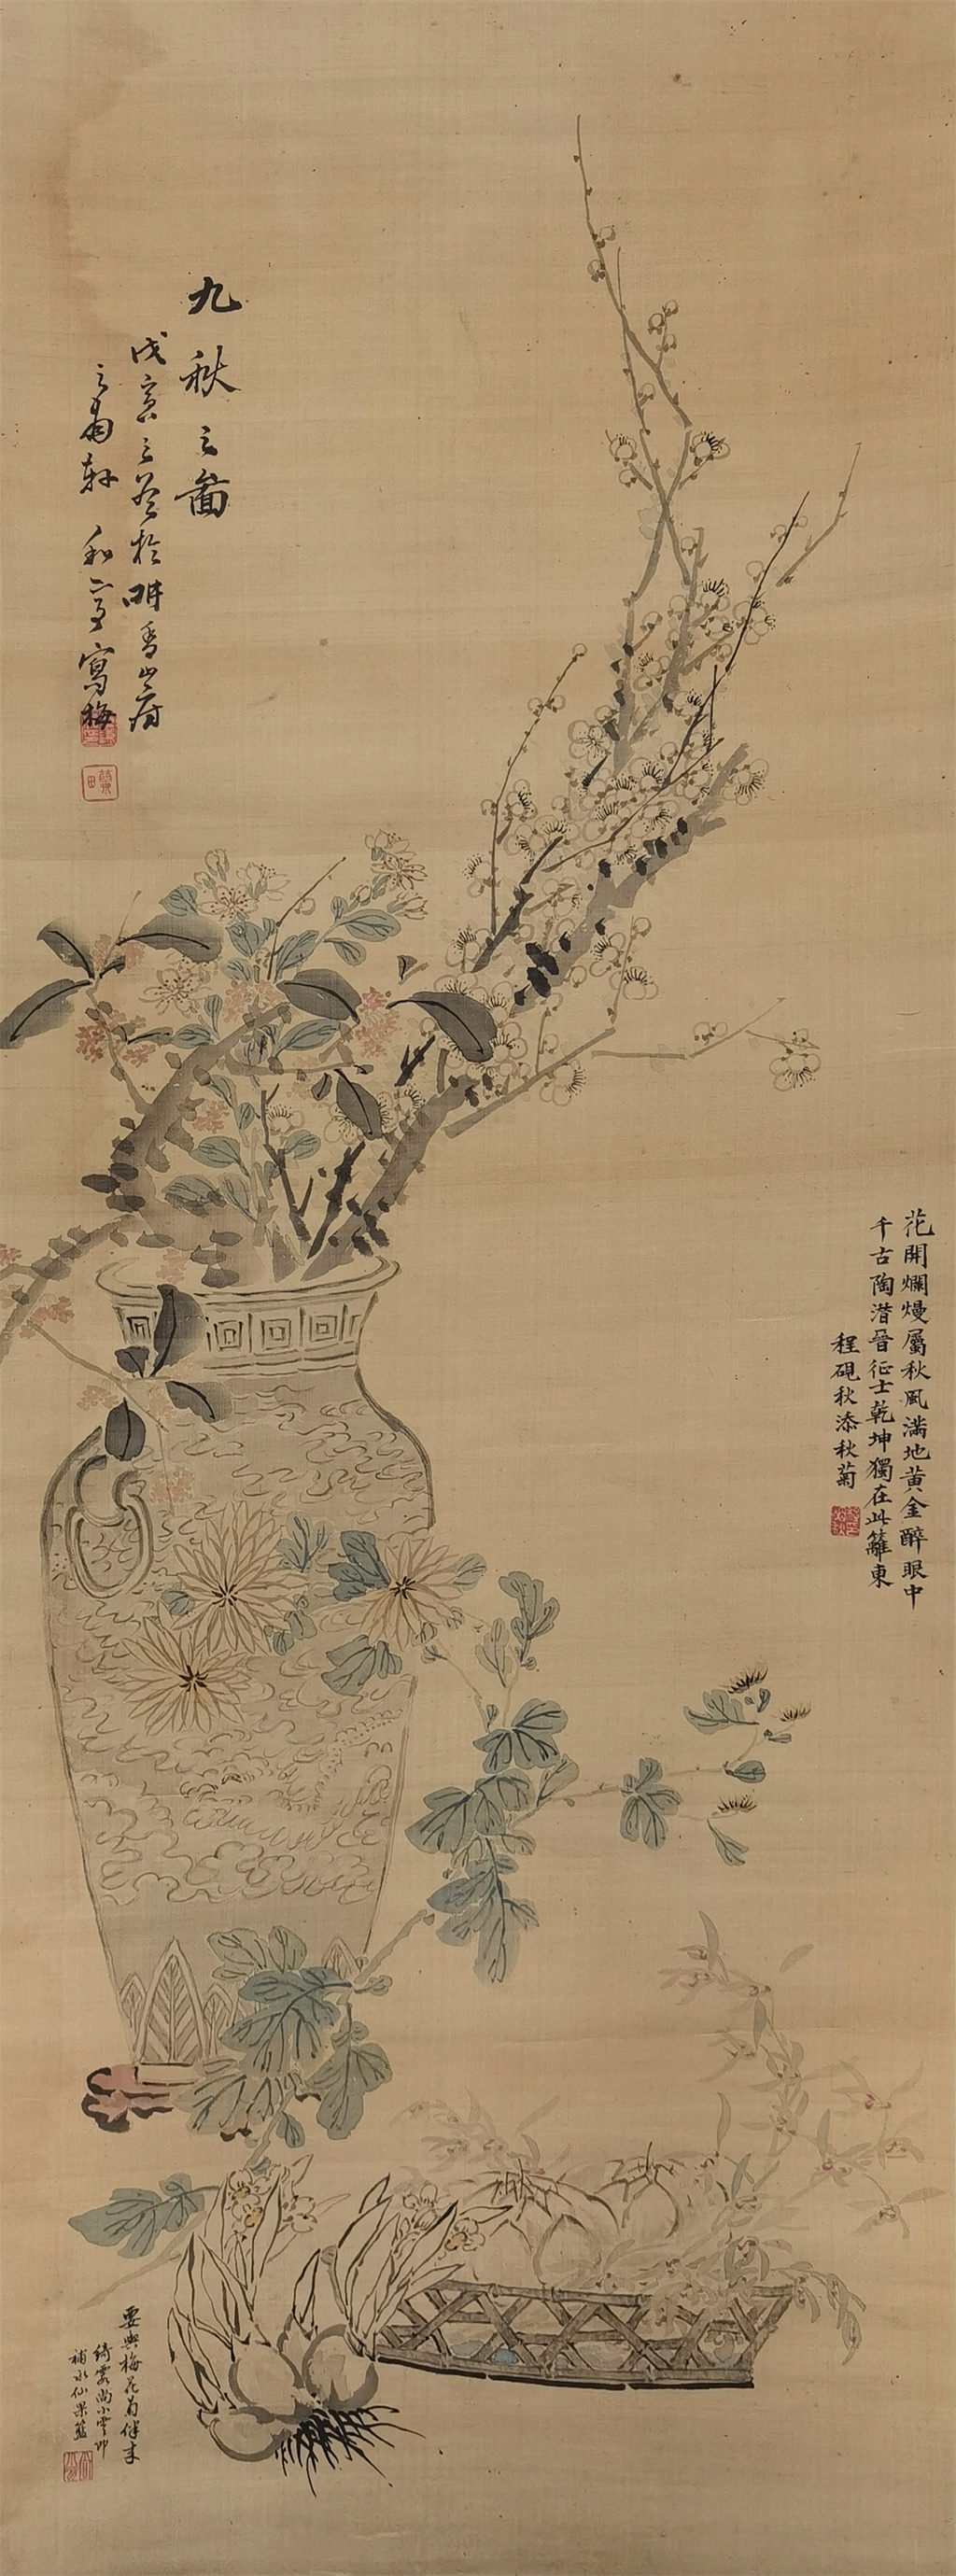 九秋之圖
戊寅之冬於明香山房
之甫軒 和亭寫梅
花開爛熳屬秋風滿地黃金醉眼中
千古陶潛晉征士乾坤獨在此籬東
程硯秋添秋菊
要與梅花為伴來
綺霞尚小雲
補水仙果籃